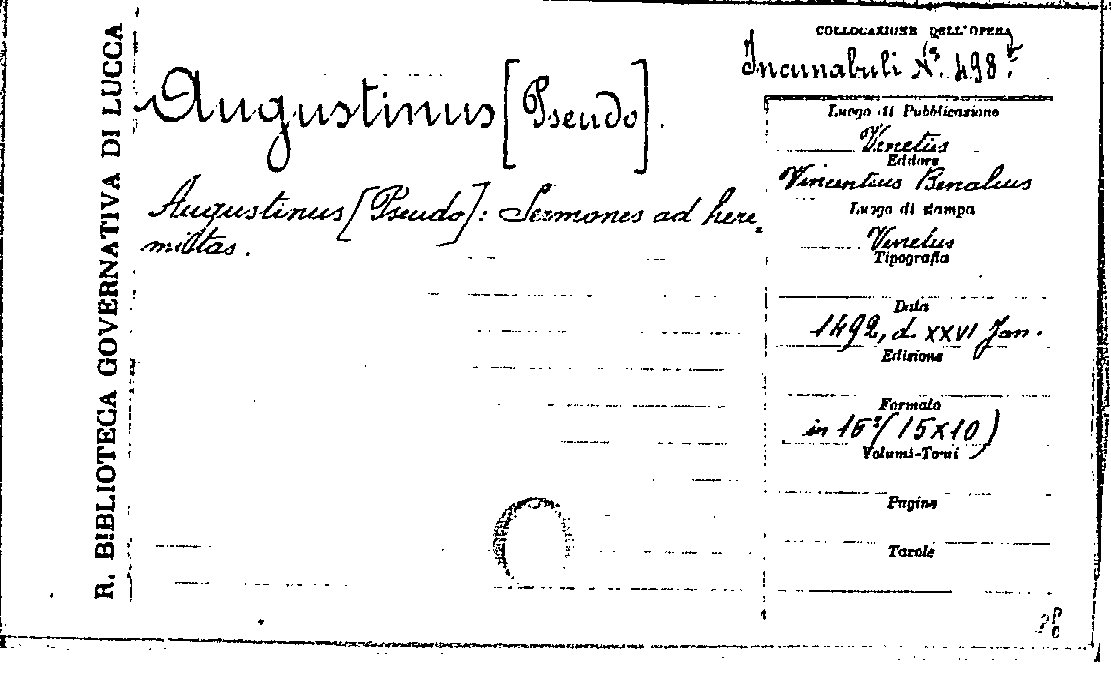 R. BIBLIOTECA GOVERNATIVA DI LUCCA
Augustinus [Pseudo].
Augustinus [Pseudo]: Sermones ad here„
mittas.
COLLOCAZIONE DELL'OPERA
Incunabuli N.º 498.
Luogo di Pubblicazione
Venetiis
Editore
Vincentius Benalius
Luogo di stampa
Venetiis
Tipografia
Data
1492, d. XXVI Jan.
Edizione
Formato
in 16º (15X10)
Volumi-Tomi
Pagine
Tavole